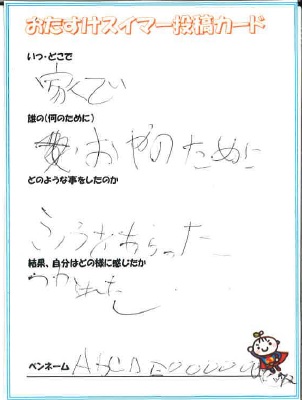 おたすけスイマー投稿カード
いつ・どこで
家で
誰の(何のために)
おやのために
どのような事をしたのか
ふろをあらった
結果、自分はどの様に感じたか
つかれた
ペンネーム ABCDE000000